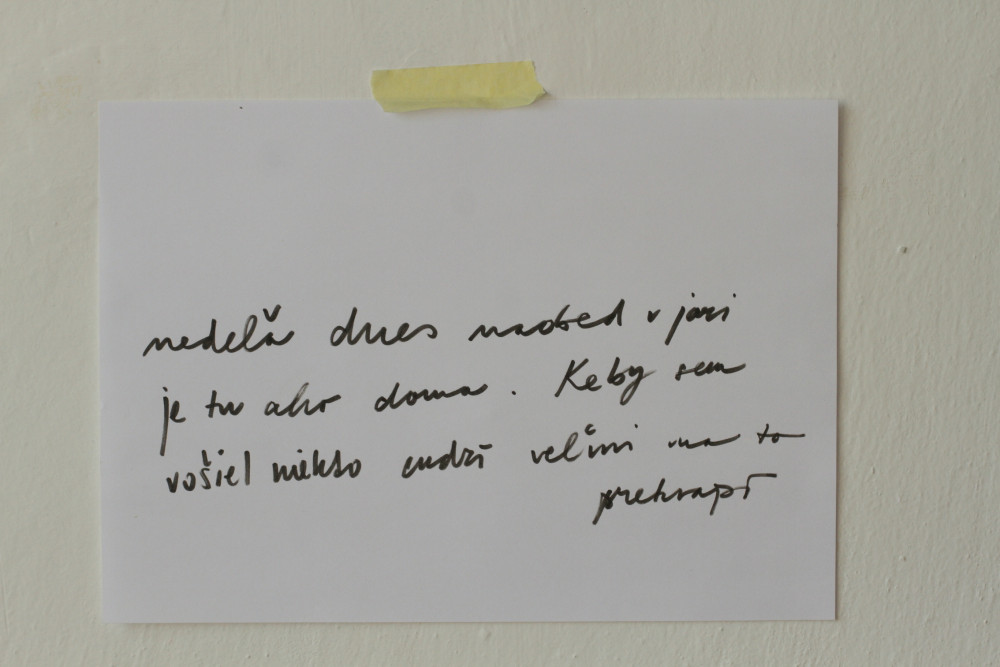 nedeľa dnes nadšed v jari
je tu ako doma. Keby sem
vošiel niekto cudzí veľmi ma to
prekvapí